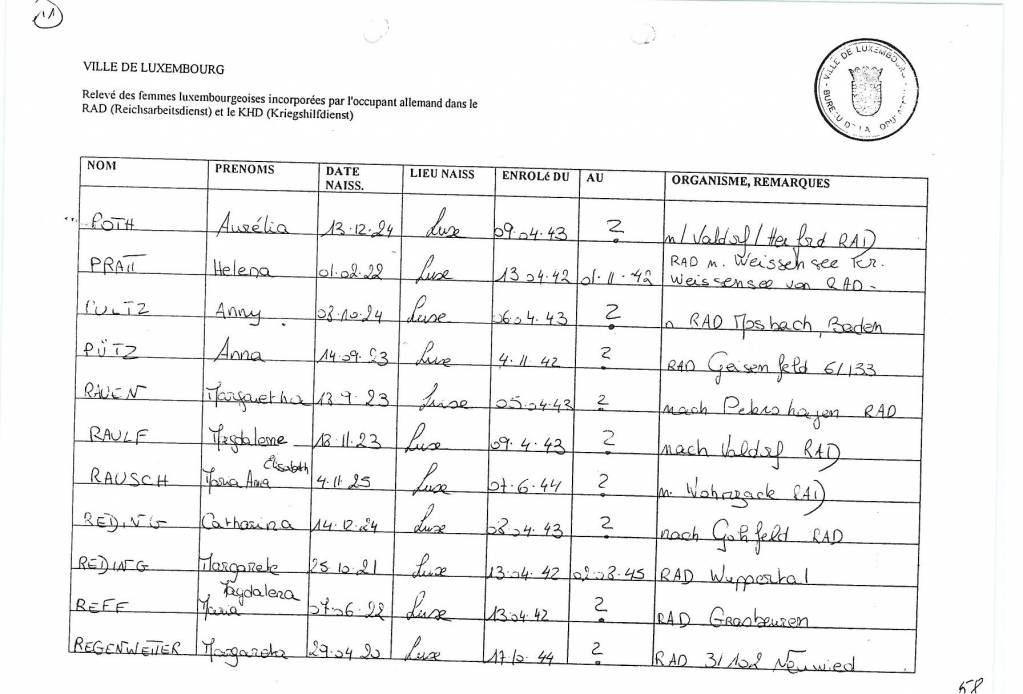 11
VILLE DE LUXEMBOURG
VILLE DE LUXEMBOURG
BUREAU DE LA POPULATION
Relevé des femmes luxembourgeoises incorporées par l'occupant allemand dans le
RAD (Reichsarbeitsdienst) et le KHD (Kriegshilfdienst)
NOM PRENOMS DATE NAISS. LIEU NAISS ENROLé DU AU ORGANISME, REMARQUES
POTH Aurélia 13.12.24 Luxe 09.04.43 ? n/ Valdorf/Herford RAD
PRATT Helena 01.02.22 Luxe 13.04.42 01.11.42 RAD n. Weissensee Kr.
Weissensee von RAD-
PULTZ Anny. 03.10.24 Luxe 06.04.43 ? n RAD Mosbach, Baden
PÜTZ Anna 14.09.23 Luxe 4.11.42 ? RAD Geisenfeld 6/133
RAUEN Margaretha 13.9.23 Luxe 05.04.43 ? nach Petershagen RAD
RAULF Magdalene 18.11.23 Luxe 09.4.43 ? nach Valdorf RAD
RAUSCH Maria Anna Elisabeth 4.11.25 Luxe 07.6.44 ? n. RAD
REDING Catharina 14.12.24 Luxe 08.04.43 ? nach Gohfeld RAD
REDING Margarete 25.10.21 Luxe 13.04.42 02.08.45 RAD Wuppertal
REFF Maria Magdalena 07.06.22 Luxe 13.04.42 ? RAD
REGENWETTER Margareta 29.04.20 Luxe 44 ? RAD 31/102 Neuwied
58